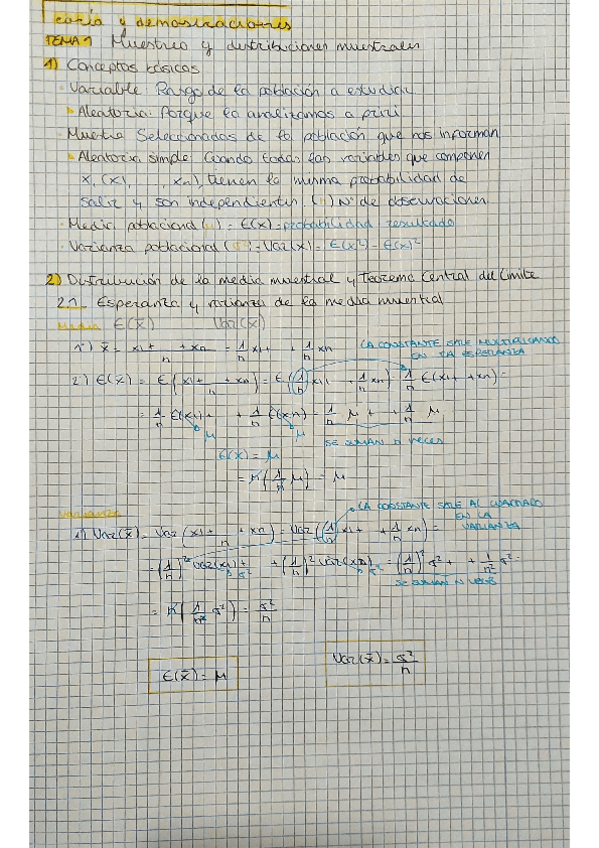 Teoría y demostraciones
TEMA 1 Muestreo y distribuciones muestrales
1) Conceptos básicos
· Variable: Rasgo de la población a estudiar
▸ Aleatoria: Porque la analizamos a priori
· Muestra: Seleccionados de la población que nos informan
▸ Aleatoria simple: Cuando todas las variables que componen
x, (x1, xn), tienen la misma probabilidad de
salir y son independientes. ( ) Nº de observaciones
· Media poblacional ( ) = E(x) = probabilidad resultado
· Varianza poblacional ( ) = Var(x) = E(x²) - E(x)²
2) Distribución de la media muestral y Teorema Central del Límite
2.1 - Esperanza y varianza de la media muestral
Media E(x̄) Var(x̄)
1º) x̄ = x1+ + xn / n = 1/n x1+ + 1/n xn
LA CONSTANTE SALE MULTIPLICANDO
EN LA ESPERANZA
2º) E(x̄) = E(x1+ + xn / n) = E(1/n x1+ + 1/n xn) = 1/n E(x1+ + xn) =
= 1/n E(x1)+ + 1/n E(xn) = 1/n μ + + 1/n μ
μ μ
SE SUMAN n veces
E(x) = μ
= n(1/n μ) = μ
Varianza
LA CONSTANTE SALE AL CUADRADO
EN LA
VARIANZA
1) Var(x̄) = Var(x1+ + xn / n) = Var(1/n x1+ + 1/n xn) =
= (1/n)² Var(x1)+ + (1/n)² Var(xn) = (1/n)² σ² + + 1/n² σ² =
σ² σ²
SE SUMAN N VECES
= n(1/n² σ²) = σ²/n
E(x̄) = μ
Var(x̄) = σ²/n